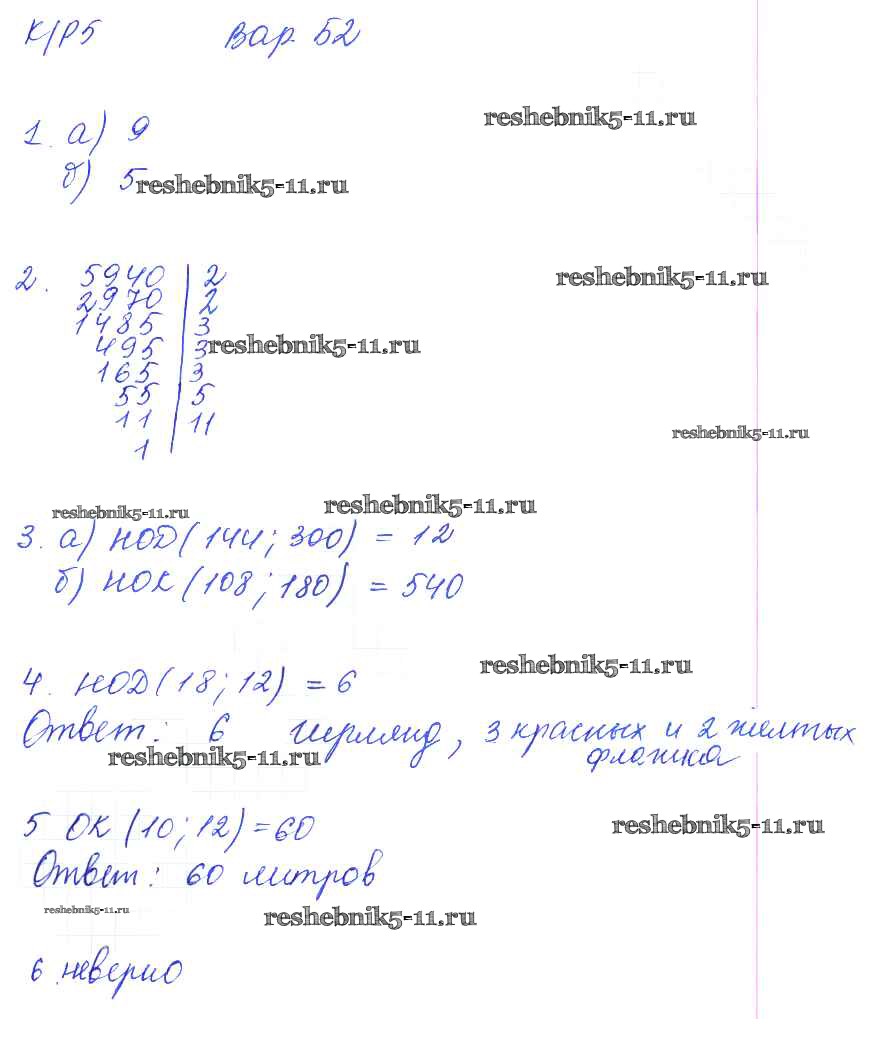 К/Р5 Вар Б2
reshebnik5-11.ru
1. а) 9
б) 5
reshebnik5-11.ru
reshebnik5-11.ru
2. 5940 | 2
2970 | 2
1485 | 3
495 | 3
reshebnik5-11.ru
165 | 3
55 | 5
11 | 11
1
reshebnik5-11.ru
reshebnik5-11.ru
reshebnik5-11.ru
3. а) НОД(144; 300) = 12
б) НОК(108; 180) = 540
reshebnik5-11.ru
4. НОД(18; 12) = 6
Ответ: 6 гирлянд, 3 красных и 2 желтых
флажка
reshebnik5-11.ru
5 ОК (10; 12) = 60
reshebnik5-11.ru
Ответ: 60 литров
reshebnik5-11.ru
reshebnik5-11.ru
6. неверно